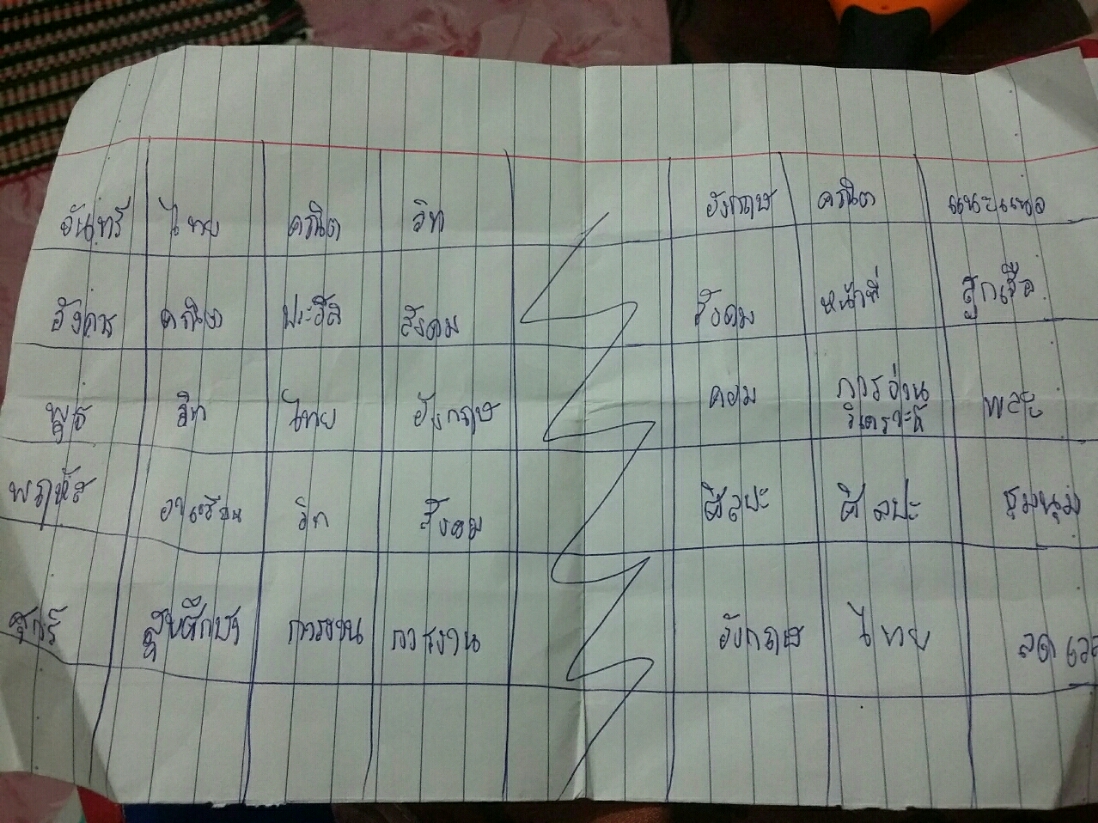 จันทร์ ไทย คณิต วิท อังกฤษ คณิต แนะแนว
อังคาร คณิต ประวัติ สังคม สังคม หน้าที่ ลูกเสือ
พุธ วิท ไทย อังกฤษ คอม การอ่าน
วิเคราะห์ พละ
พฤหัส วิท สังคม ศิลปะ ศิลปะ ชุมนุม
ศุกร์ สุขศึกษา การงาน การงาน อังกฤษ ไทย ลด